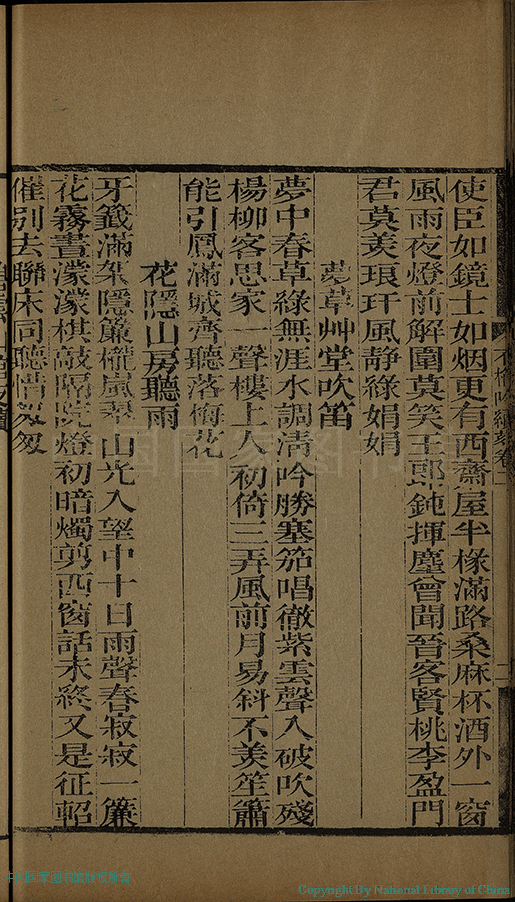 使臣如鏡士如烟更有西齋屋半椽滿路桑麻杯酒外一窗
風雨夜燈前解圍莫笑王郎鈍揮麈曾聞晉客賢桃李盈門
君莫羨琅玕風静綠娟娟
夢草艸堂吹笛
夢中春草綠無涯水調清吟勝塞笳唱徹紫雲聲入破吹殘
楊柳客思家一聲樓上人初倚三弄風前月易斜不羨笙簫
能引鳳滿城齊聽落梅花
花隱山房聽雨
牙籤滿架隱簾櫳嵐翠山光入望中十日雨聲春寂寂一簾
花霧晝濛濛棋敲隔院燈初暗燭剪西窗話未終又是征軺
催别去聯床同聽惜匆匆
吟續草卷二
二
中国国家图书馆
Copyright By National Library of China